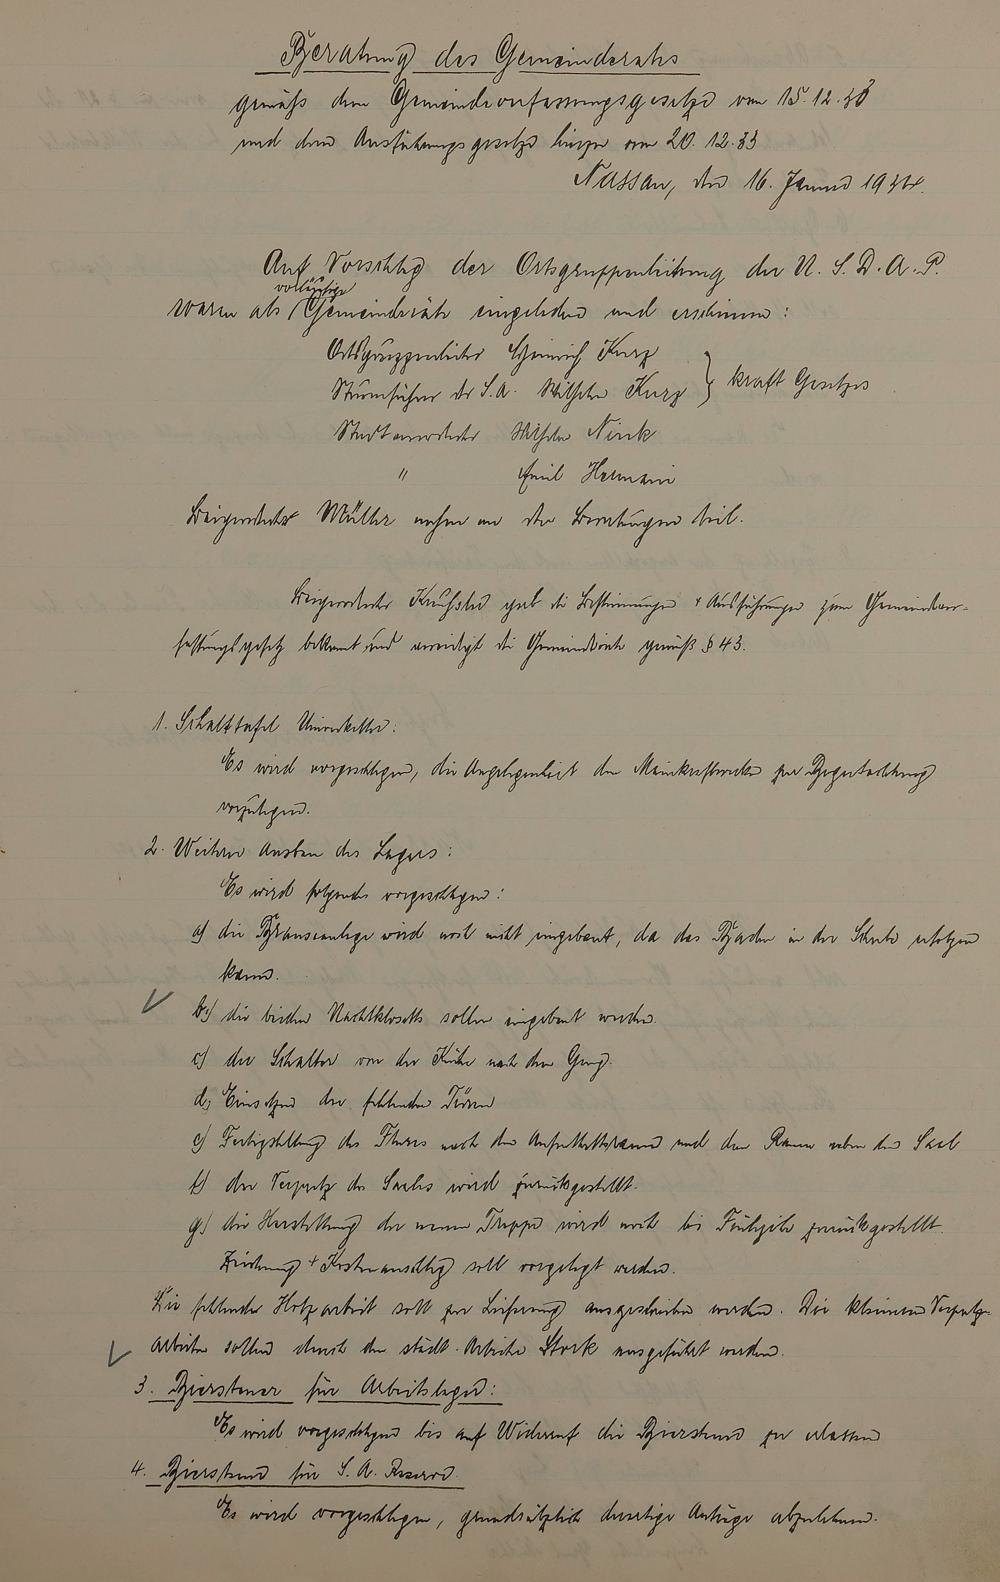 Beratung des Gemeinderates
gemäß dem Gemeindeverfassungsgesetze vom 15.12.33
und dem Ausführungsgesetze hierzu vom 20.12.33
Nassau, den 16. Januar 1934.
Auf Vorschlag der Ortsgruppenleitung der N.S.D.A.P.
waren als vorläufige Gemeinderäte eingeladen und erschienen:
Ortsgruppenleiter Heinrich Kurz
Sturmführer der S.A. Wilhelm Kurz } kraft Gesetzes
Stadtverordneter Wilhelm Ninck
" Emil Hermani
Beigeordneter Müller nahm an den Beratungen teil.
Beigeordneter gab die Bestimmungen + Ausführungen zum Gemeindever-
fassungsgesetz bekannt und vereidigt die Gemeinderäte gemäß § 43.
1. Schalttafel Umerketter:
Es wird vorgeschlagen, die Angelegenheit den Mainkraftwerken zur Begutachtung
vorzulegen.
2. Weiterer Ausbau des Lagers:
Es wird folgendes vorgeschlagen:
a) die Brauseanlage wird noch nicht eingebaut, da das Baden in der erfolgen
kann.
b.) die beiden Nachtklosetts sollen eingebaut werden.
c) der Schalter von der Küche nach dem Gang.
d) Einsetzen der fehlenden Türen
e) Fertigstellung des Flures nach den Aufenthaltsräumen und dem Raum neben dem Saal
f) der Verputz des Saales wird zurückgestellt.
g.) die Herstellung der neuen Treppe wird noch bis Frühjahr zurückgestellt.
Zeichnung + Kostenanschlag soll vorgelegt werden.
Die fehlende Holzarbeit soll zur Lieferung ausgeschrieben werden. Die kleineren Verputz-
arbeiten sollen durch den städt. Arbeiter Stork ausgeführt werden.
3. Biersteuer für Arbeitslager:
Es wird vorgeschlagen bis auf Widerruf die Biersteuer zu erlassen
4. Biersteuer für S.A. Reserve.
Es wird vorgeschlagen, grundsätzlich derartige Anträge abzulehnen.